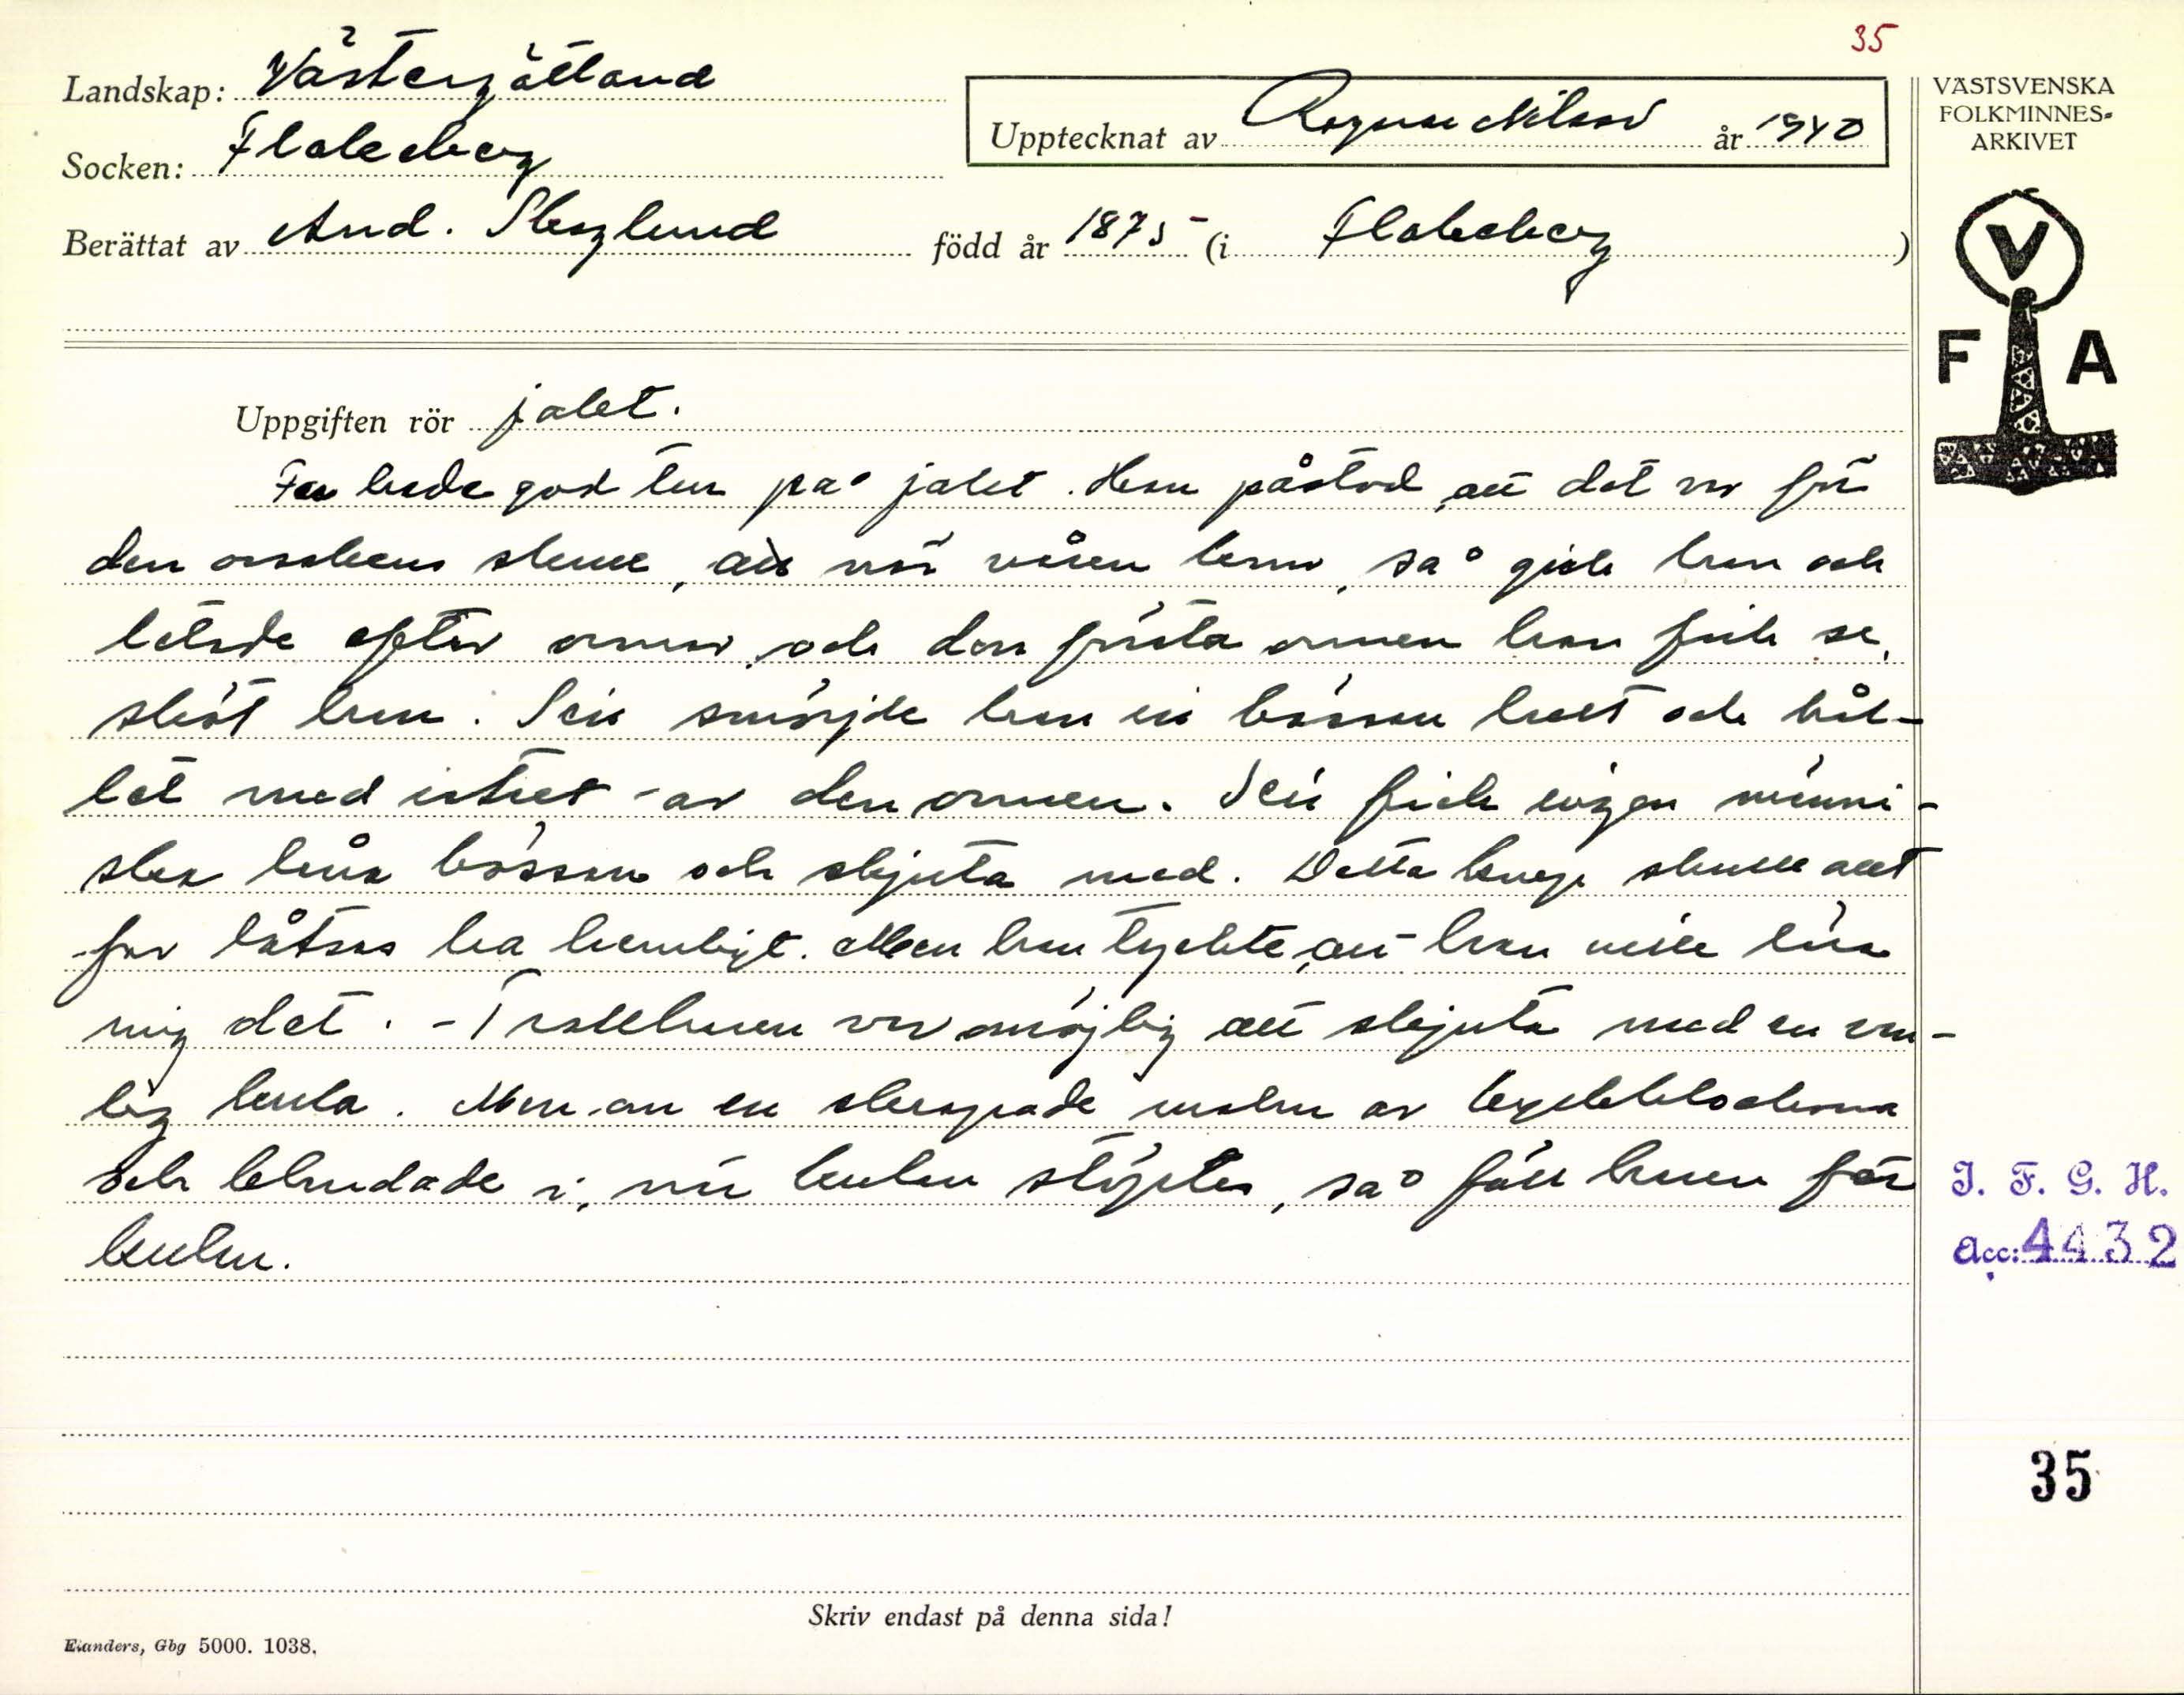 35
Landskap: Västergötland
Upptecknat av Ragnar Nilsson år 1940
Socken: Flakeberg
Berättat av And. Skoglund född år 1875 (i Flakeberg)
VÄSTSVENSKA
FOLKMINNES-
ARKIVET
V
F A
Uppgiften rör jakt.
Far hade god tur på jakt. Han påstod, att det var för
den orsakens skull, att när våren kom, så gick han och
letade efter ormar, och den första ormen han fick se,
sköt han. Sen smörjde han in bössan helt och hål-
let med istret av den ormen. Sen fick ingen männi-
ska låna bössan och skjuta med. Detta skulle allt
far låtsas ha hemligt. Men han tyckte, att han ville lära
mig det. - Trollharen var omöjlig att skjuta med en van-
lig kula. Men om en skrapade malm av kyrkklockorna
och blandade i, när kulan stöptes, så föll haren för
kulan.
J. F. G. H.
Acc: 4432
35
Skriv endast på denna sida!
Elanders, Gbg 5000. 1038.